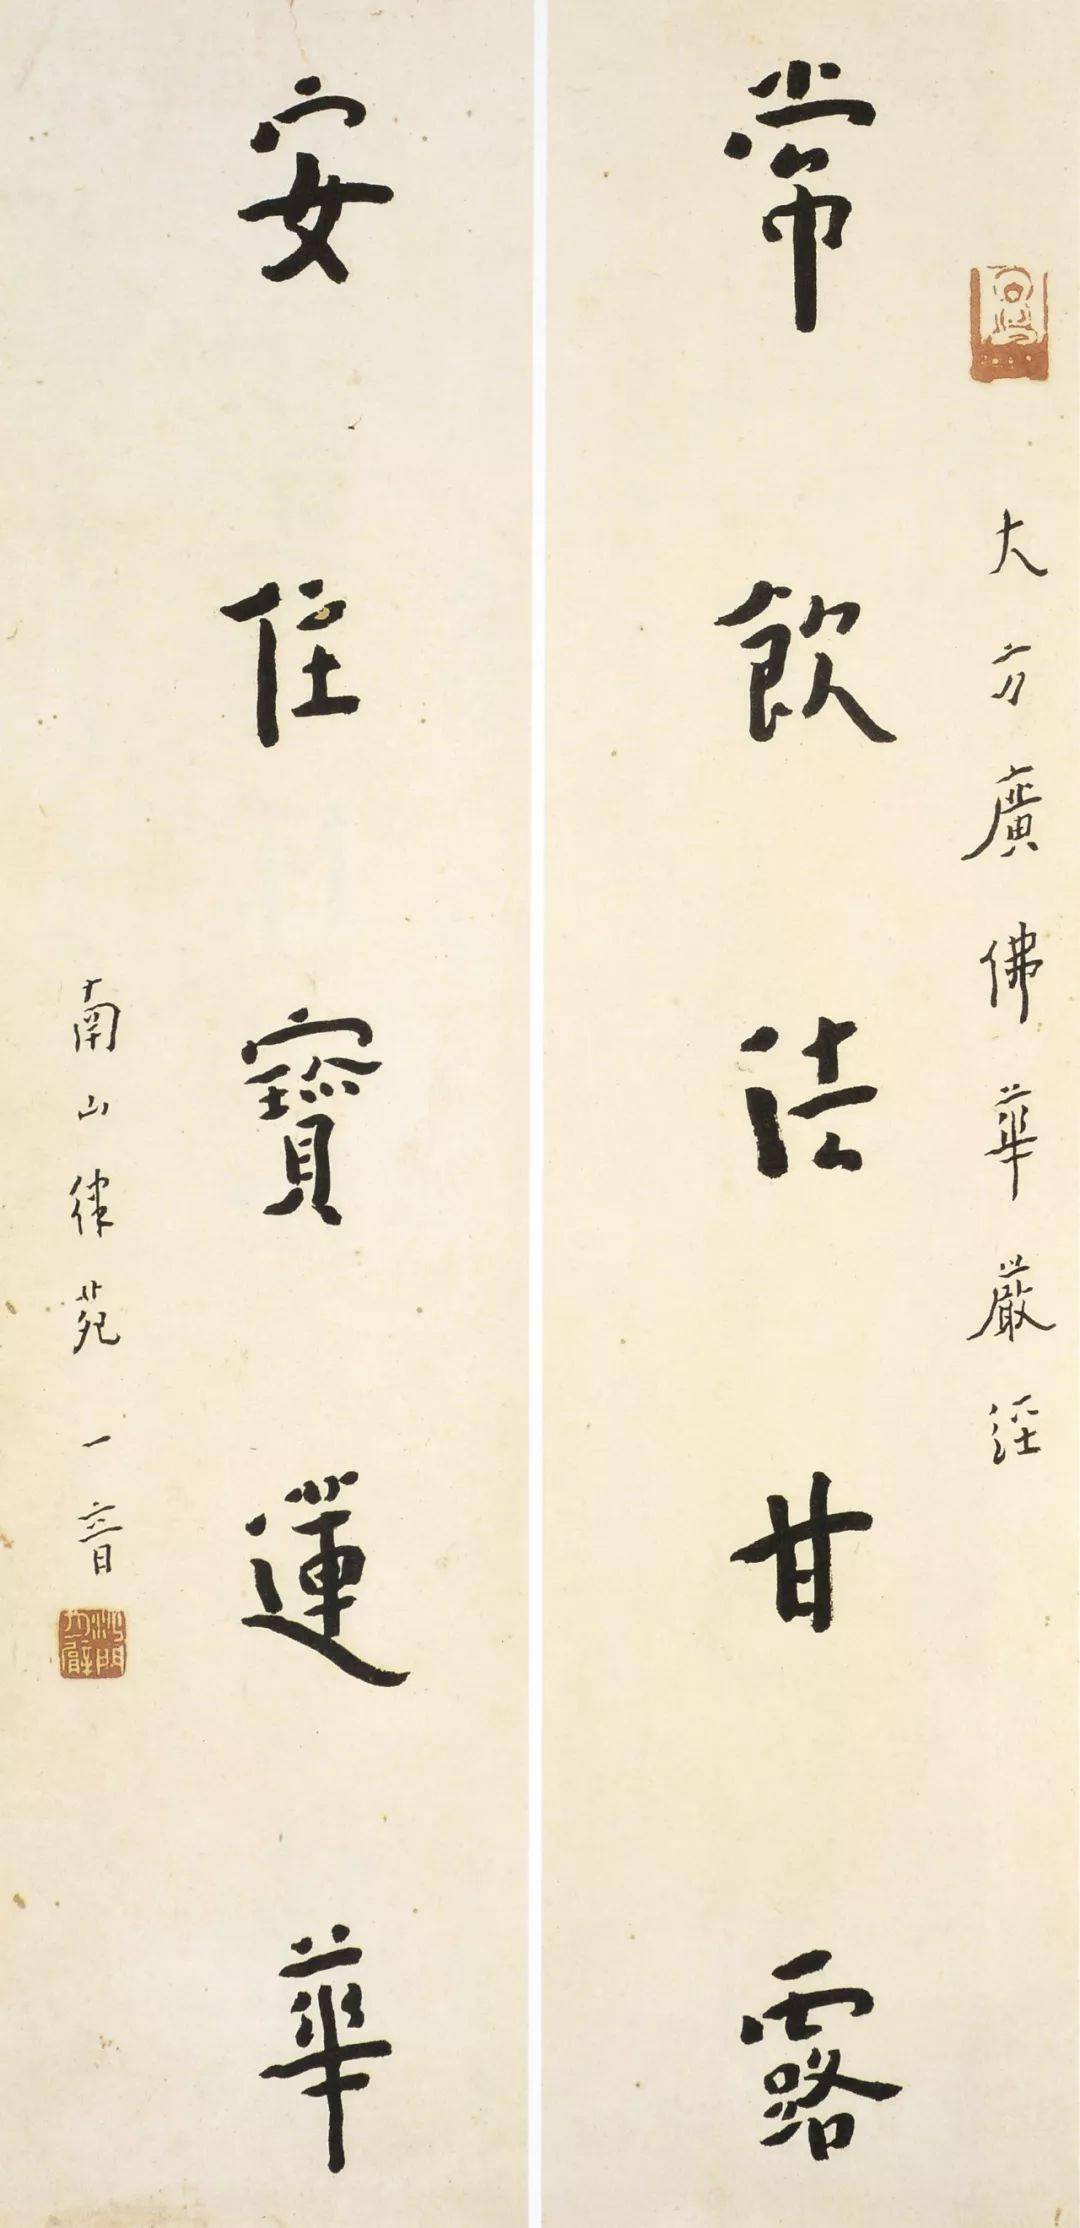 大方廣佛華嚴經
常飲法甘露
安住寶蓮華
南山律苑一音
沙門月臂